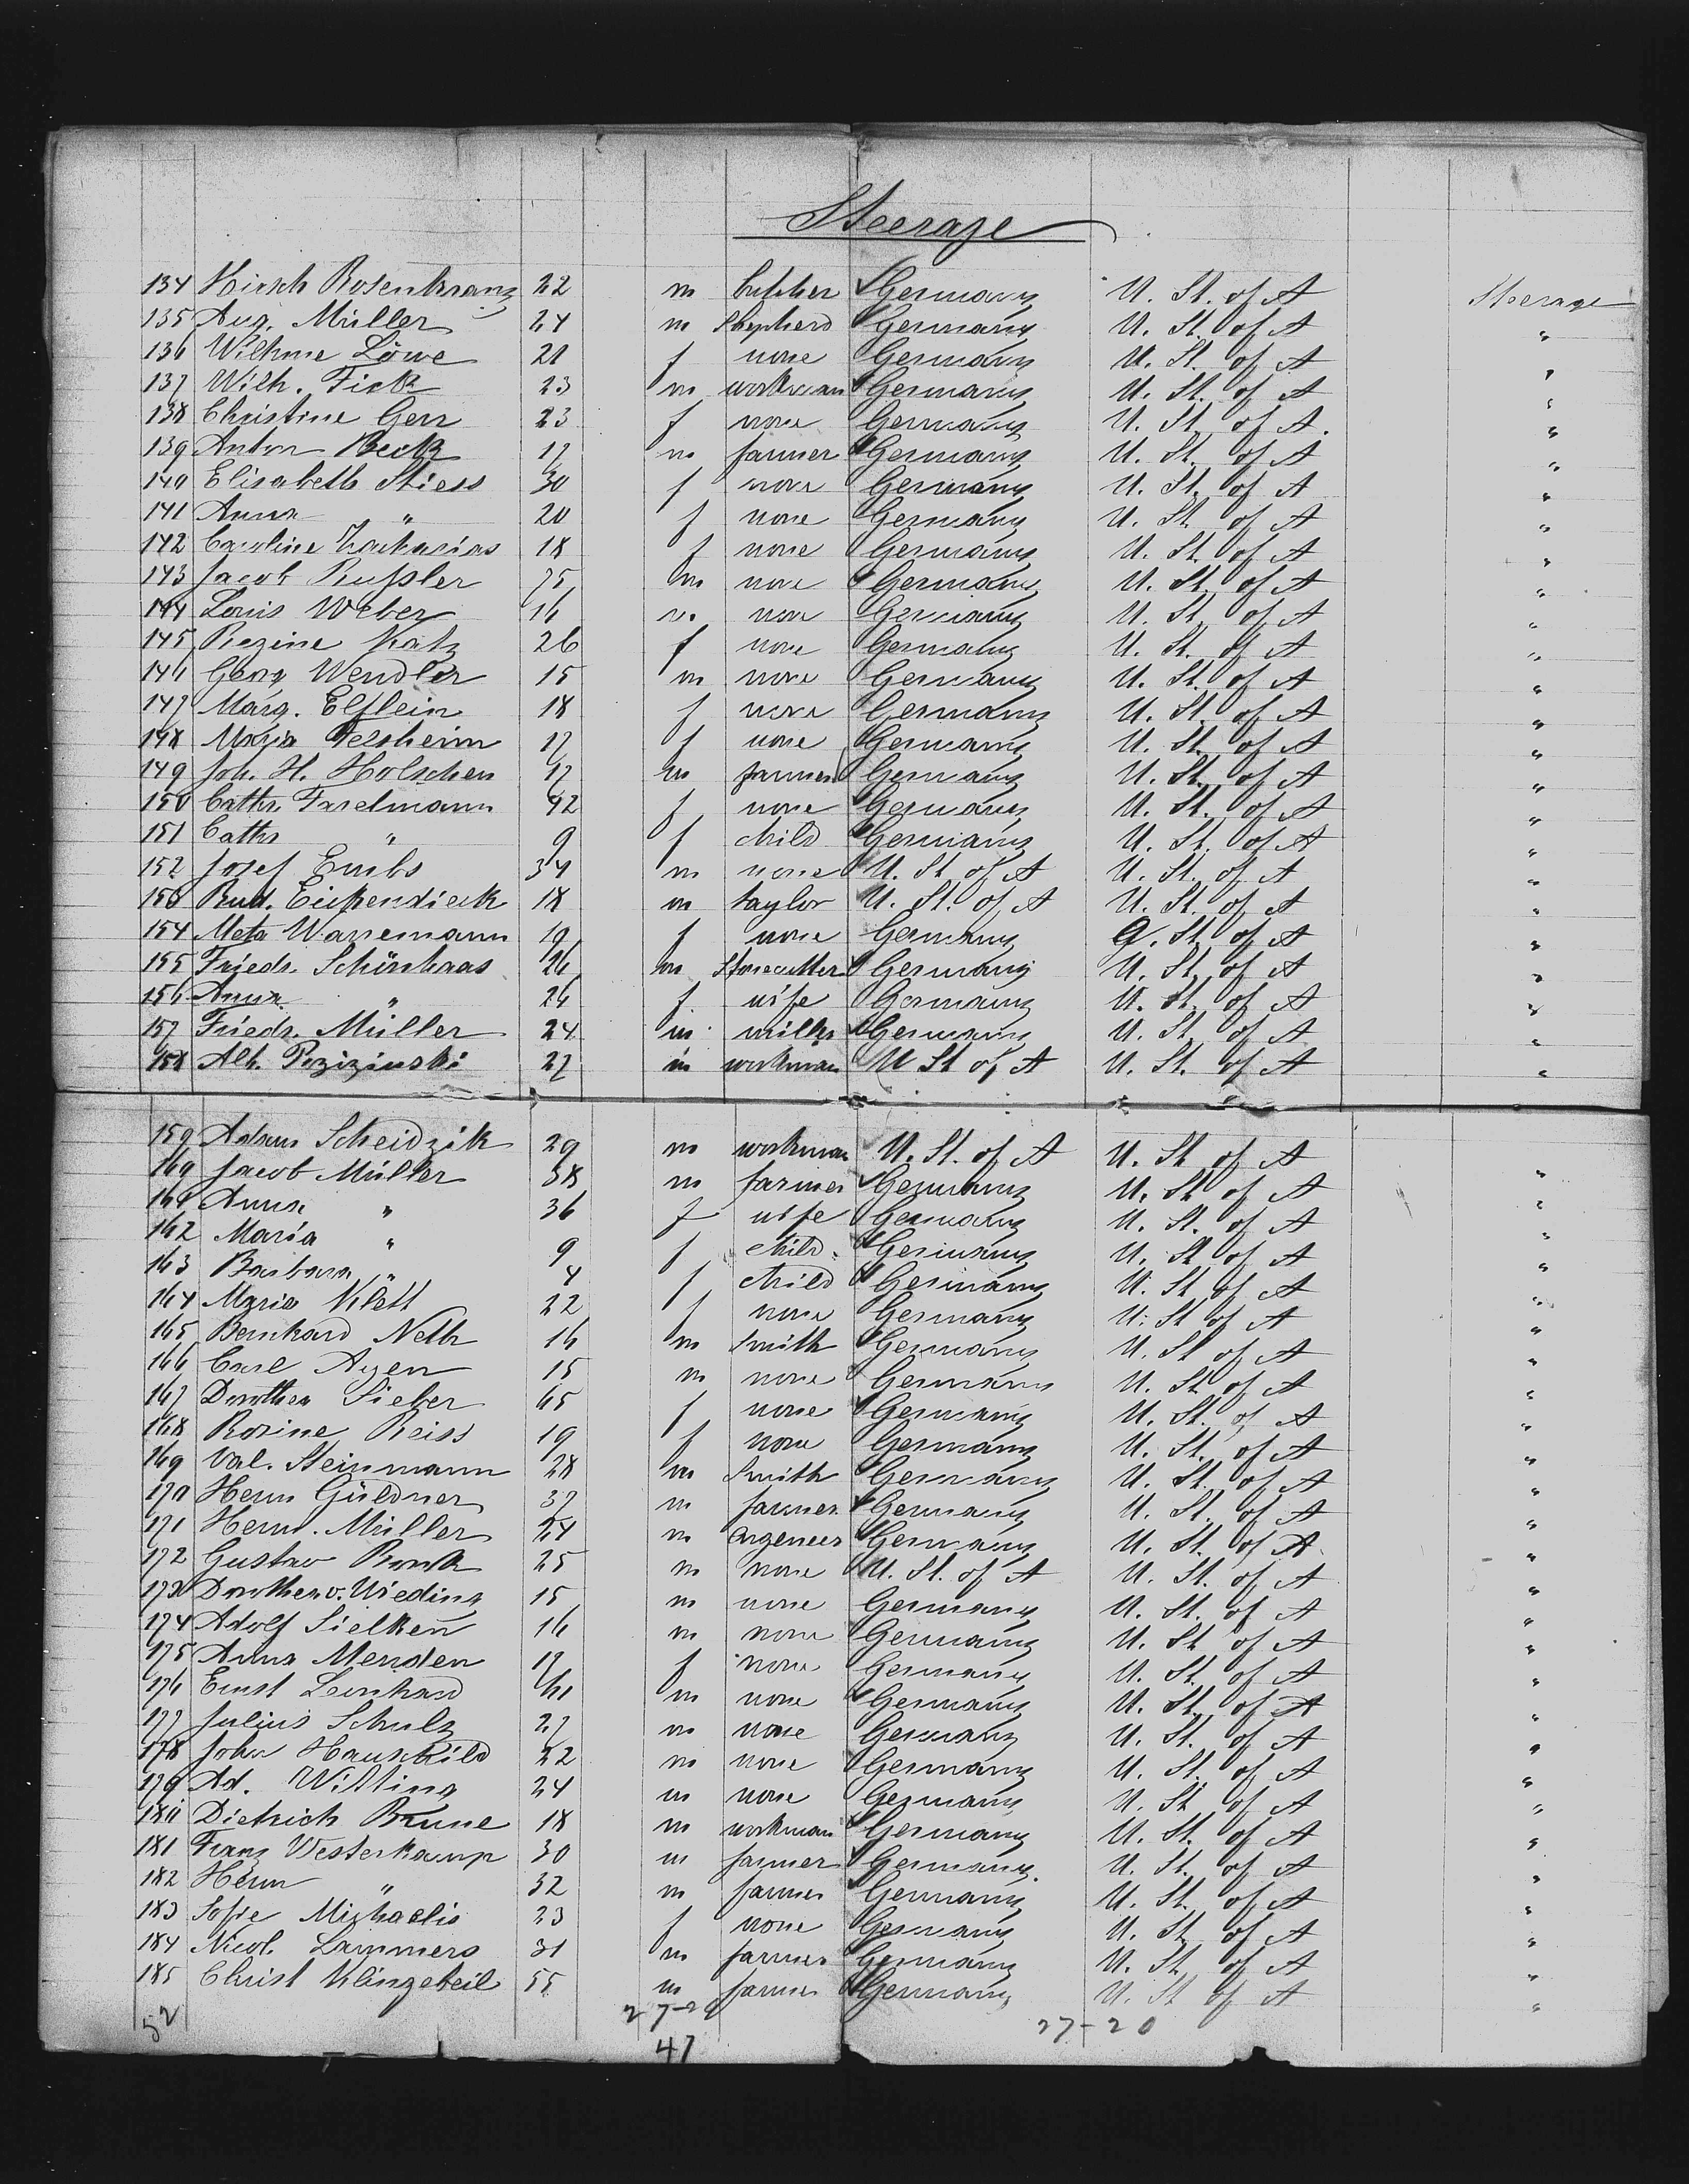 Steerage
134 Hirsch Rosenkranz 22 m butcher Germany U. St. of A Steerage
135 Aug. Müller 24 m Shepherd Germany U. St. of A "
136 Wilhme Löwe 21 f none Germany U. St. of A "
137 Wilh. Fick 23 m workman Germany U. St. of A "
138 Christine Gerr 23 f none Germany U. St. of A. "
139 Anton Beck 17 m farmer Germany U. St. of A "
140 Elisabeth Stiess 30 f none Germany U. St. of A "
141 Anna " 20 f none Germany U. St. of A "
142 Caroline Zacharias 18 f none Germany U. St. of A "
143 Jacob 75 m none Germany U. St. of A "
144 Louis Weber 16 m none Germany U. St. of A "
145 Regine Katz 26 f none Germany U. St. of A "
146 Georg Wendler 15 m none Germany U. St. of A "
147 Marg. Elflein 18 f none Germany U. St. of A "
148 Maria 17 f none Germany U. St. of A "
149 Joh. H. Holschen 17 m farmer Germany U. St. of A "
150 Cathr. Faselmann 42 f none Germany U. St. of A "
151 Cathr " 9 f child Germany U. St. of A "
152 Josef Embs 34 m none U. St of A U. St. of A "
153 Rud. Eickendieck 18 m taylor U. St. of A U. St. of A "
154 Meta Warnemann 19 f none Germany U. St. of A "
155 Friedr. Schönhaas 26 m Stonecutter Germany U. St. of A "
156 Anna " 26 f. wife Germany U. St. of A "
157 Friedr. Müller 24 m miller Germany U. St. of A "
158 Alb. 27 m workman U St of A U. St. of A "
159 Adam Scheidzik 29 m workman U. St. of A U. St of A "
160 Jacob Müller 38 m farmer Germany U. St of A "
161 Anna " 36 f wife Germany U. St. of A "
162 Maria " 9 f child. Germany U. St of A "
163 Barbara " 4 f child Germany U. St of A "
164 Marie Klett 22 f none Germany U. St of A "
165 Bernhard Neth 16 m Smith Germany U. St of A "
166 Carl Agen 15 m none Germany U. St of A "
167 Dorothea Sieber 65 f none Germany U. St. of A "
168 Rosine Reiss 19 f none Germany U. St. of A "
169 Val. Steinmann 28 m Smith Germany U. St. of A "
170 Herm Güldner 37 m farmer Germany U. St. of A "
171 Herm. Müller 24 m engeneer Germany U. St. of A "
172 Gustav 25 m none U. St. of A U. St. of A "
173 Dorothea v. Wieding 15 m none Germany U. St. of A "
174 Adolf Sielken 16 m none Germany U. St of A "
175 Anna Mensden 17 f none Germany U. St. of A "
176 Ernst Leonhard m none Germany U. St. of A "
177 Julius Schulz 27 m none Germany U. St. of A "
178 John Hauschild 22 m none Germany U. St. of A "
179 Ad. Wilting 24 m none Germany U. St of A "
180 Dietrich Brune 18 m workman Germany U. St. of A "
181 Franz Westerkamp 30 m farmer Germany. U. St. of A "
182 Herm " 32 m farmer Germany U. St. of A "
183 Sofie Michaelis 23 f none Germany U. St. of A "
184 Nicol. Lammers 31 m farmer Germany U. St. of A "
185 Christ Klingebeil 55 m farmer Germany U. St of A "
52 27-20 27-20
47